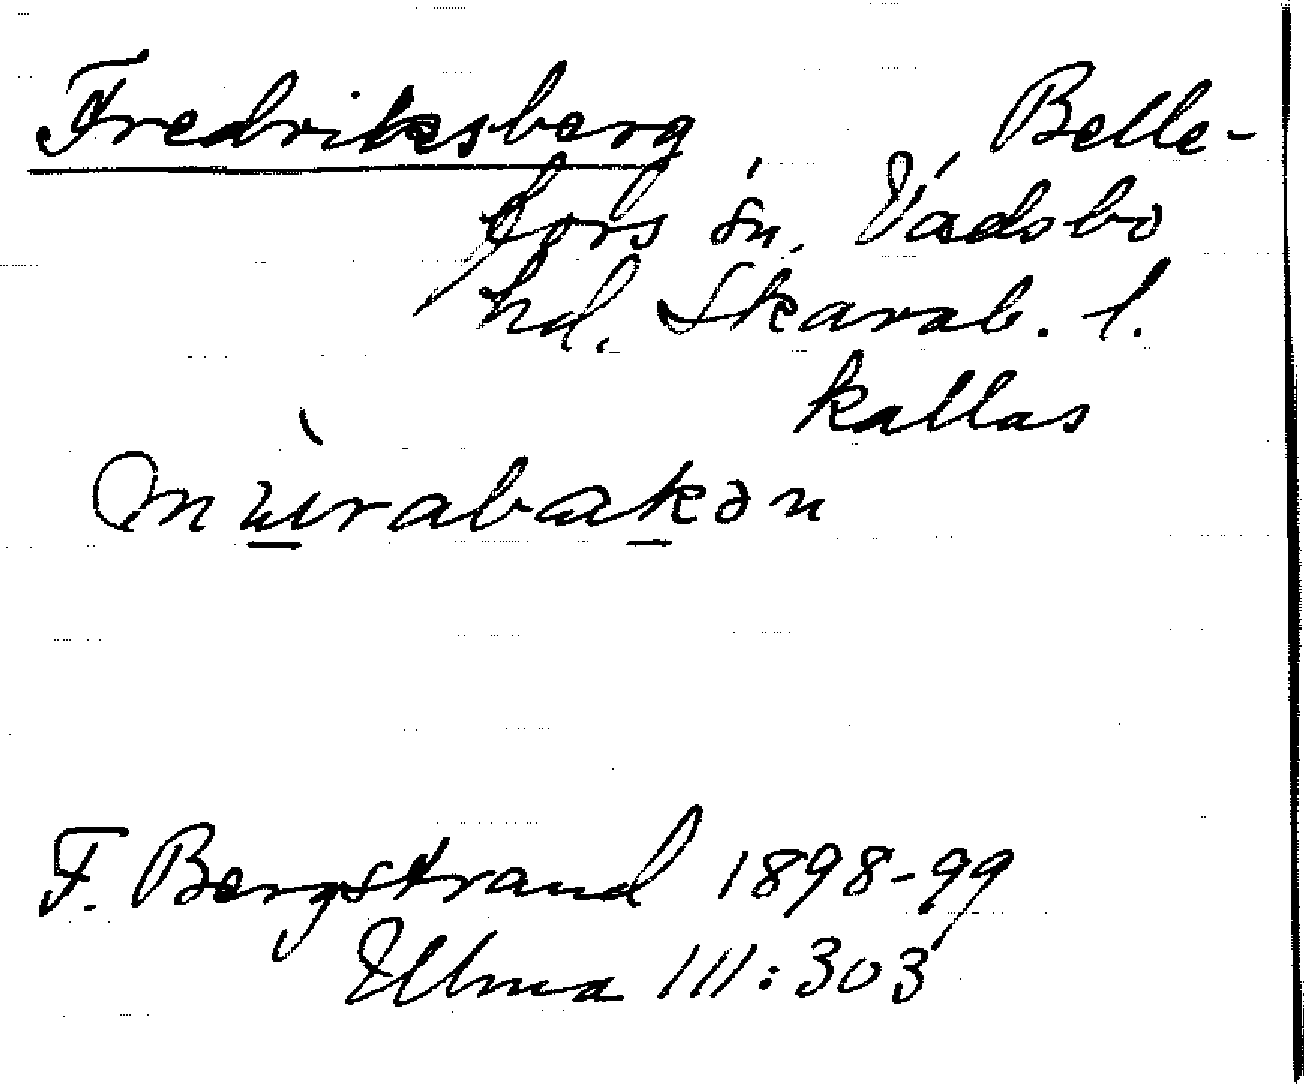 Fredriksberg Belle-
fors sn. Vadsbo
hd. Skarab. l.
kallas
mùrabakən
F. Bergstrand 1898-99
Ulma 111:303